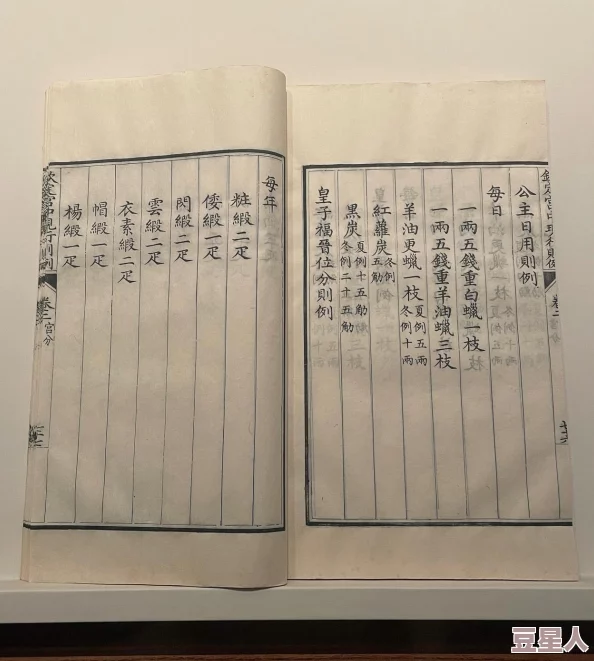 欽定宮中現行則例
卷二
公主日用則例
每日
一兩五錢重白蠟一枝
一兩五錢重羊油蠟三枝
羊油更蠟一枝 夏例五兩 冬例十兩
紅蘿炭 冬例 五觔
黑炭 夏例十五觔 冬例二十五觔
皇子福晉位分則例
每年
粧緞二疋
倭緞一疋
閃緞一疋
雲緞二疋
衣素緞二疋
帽緞一疋
楊緞一疋
欽定宮中現行則例
卷二
宮分
豆星人